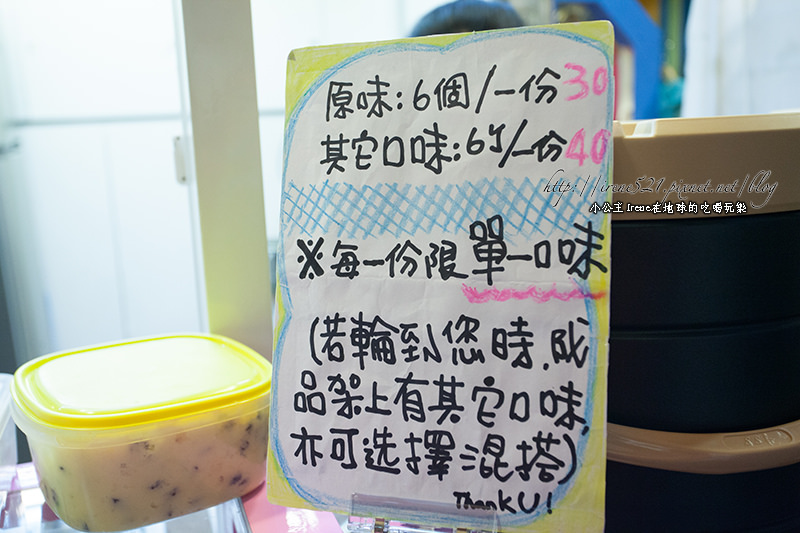 原味:6個/一份30
其它口味:6丫/一份40
http://irene521.pixnet.net/blog
小公主Irene在地球的吃喝玩樂
※每一份限單一口味
(若輪到您時,成
品架上有其它口味,
亦可选擇混搭)
Thank U!